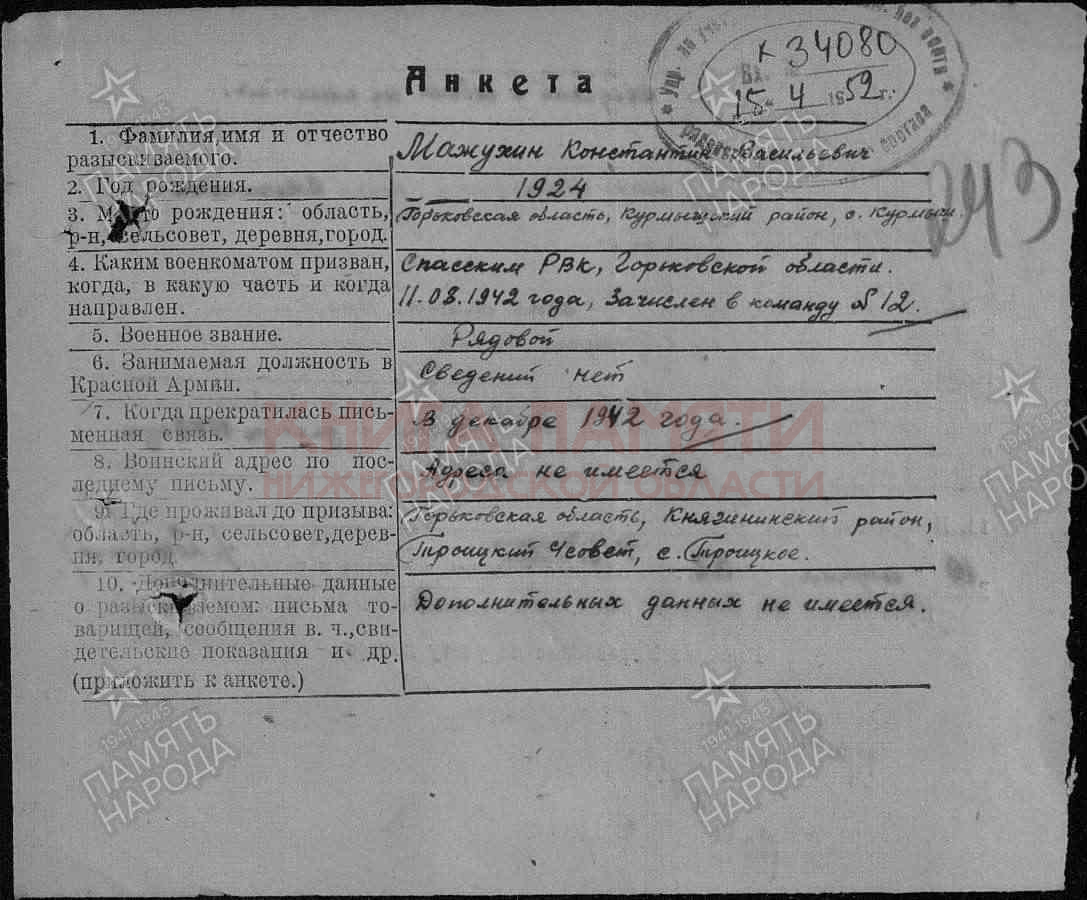 Анкета
к 34080
Вх. №
15 4 1952 г.
243
1. Фамилия, имя и отчество
разыскиваемого.
Мажухин Константин Васильевич
2. Год рождения.
1924
3. Место рождения: область,
р-н, сельсовет, деревня, город.
Горьковская область, Курмышский район, с. Курмыш.
4. Каким военкоматом призван,
когда, в какую часть и когда
направлен.
Спасским РВК, Горьковской области.
11.08.1942 года, Зачислен в команду № 12.
5. Военное звание.
Рядовой
6. Занимаемая должность в
Красной Армии.
Сведений нет
7. Когда прекратилась пись-
менная связь.
В декабре 1942 года.
8. Воинский адрес по пос-
леднему письму.
Адреса не имеется
9. Где проживал до призыва:
область, р-н, сельсовет, дерев-
ня, город.
Горьковская область, Княгининский район,
Троицкий с/совет, с. Троицкое.
10. Дополнительные данные
о разыскиваемом: письма то-
варищей, сообщения в. ч., сви-
детельские показания и др.
(приложить к анкете.)
Дополнительных данных не имеется.
КНИГА ПАМЯТИ
НИЖЕГОРОДСКОЙ ОБЛАСТИ
1941-1945
ПАМЯТЬ
НАРОДА